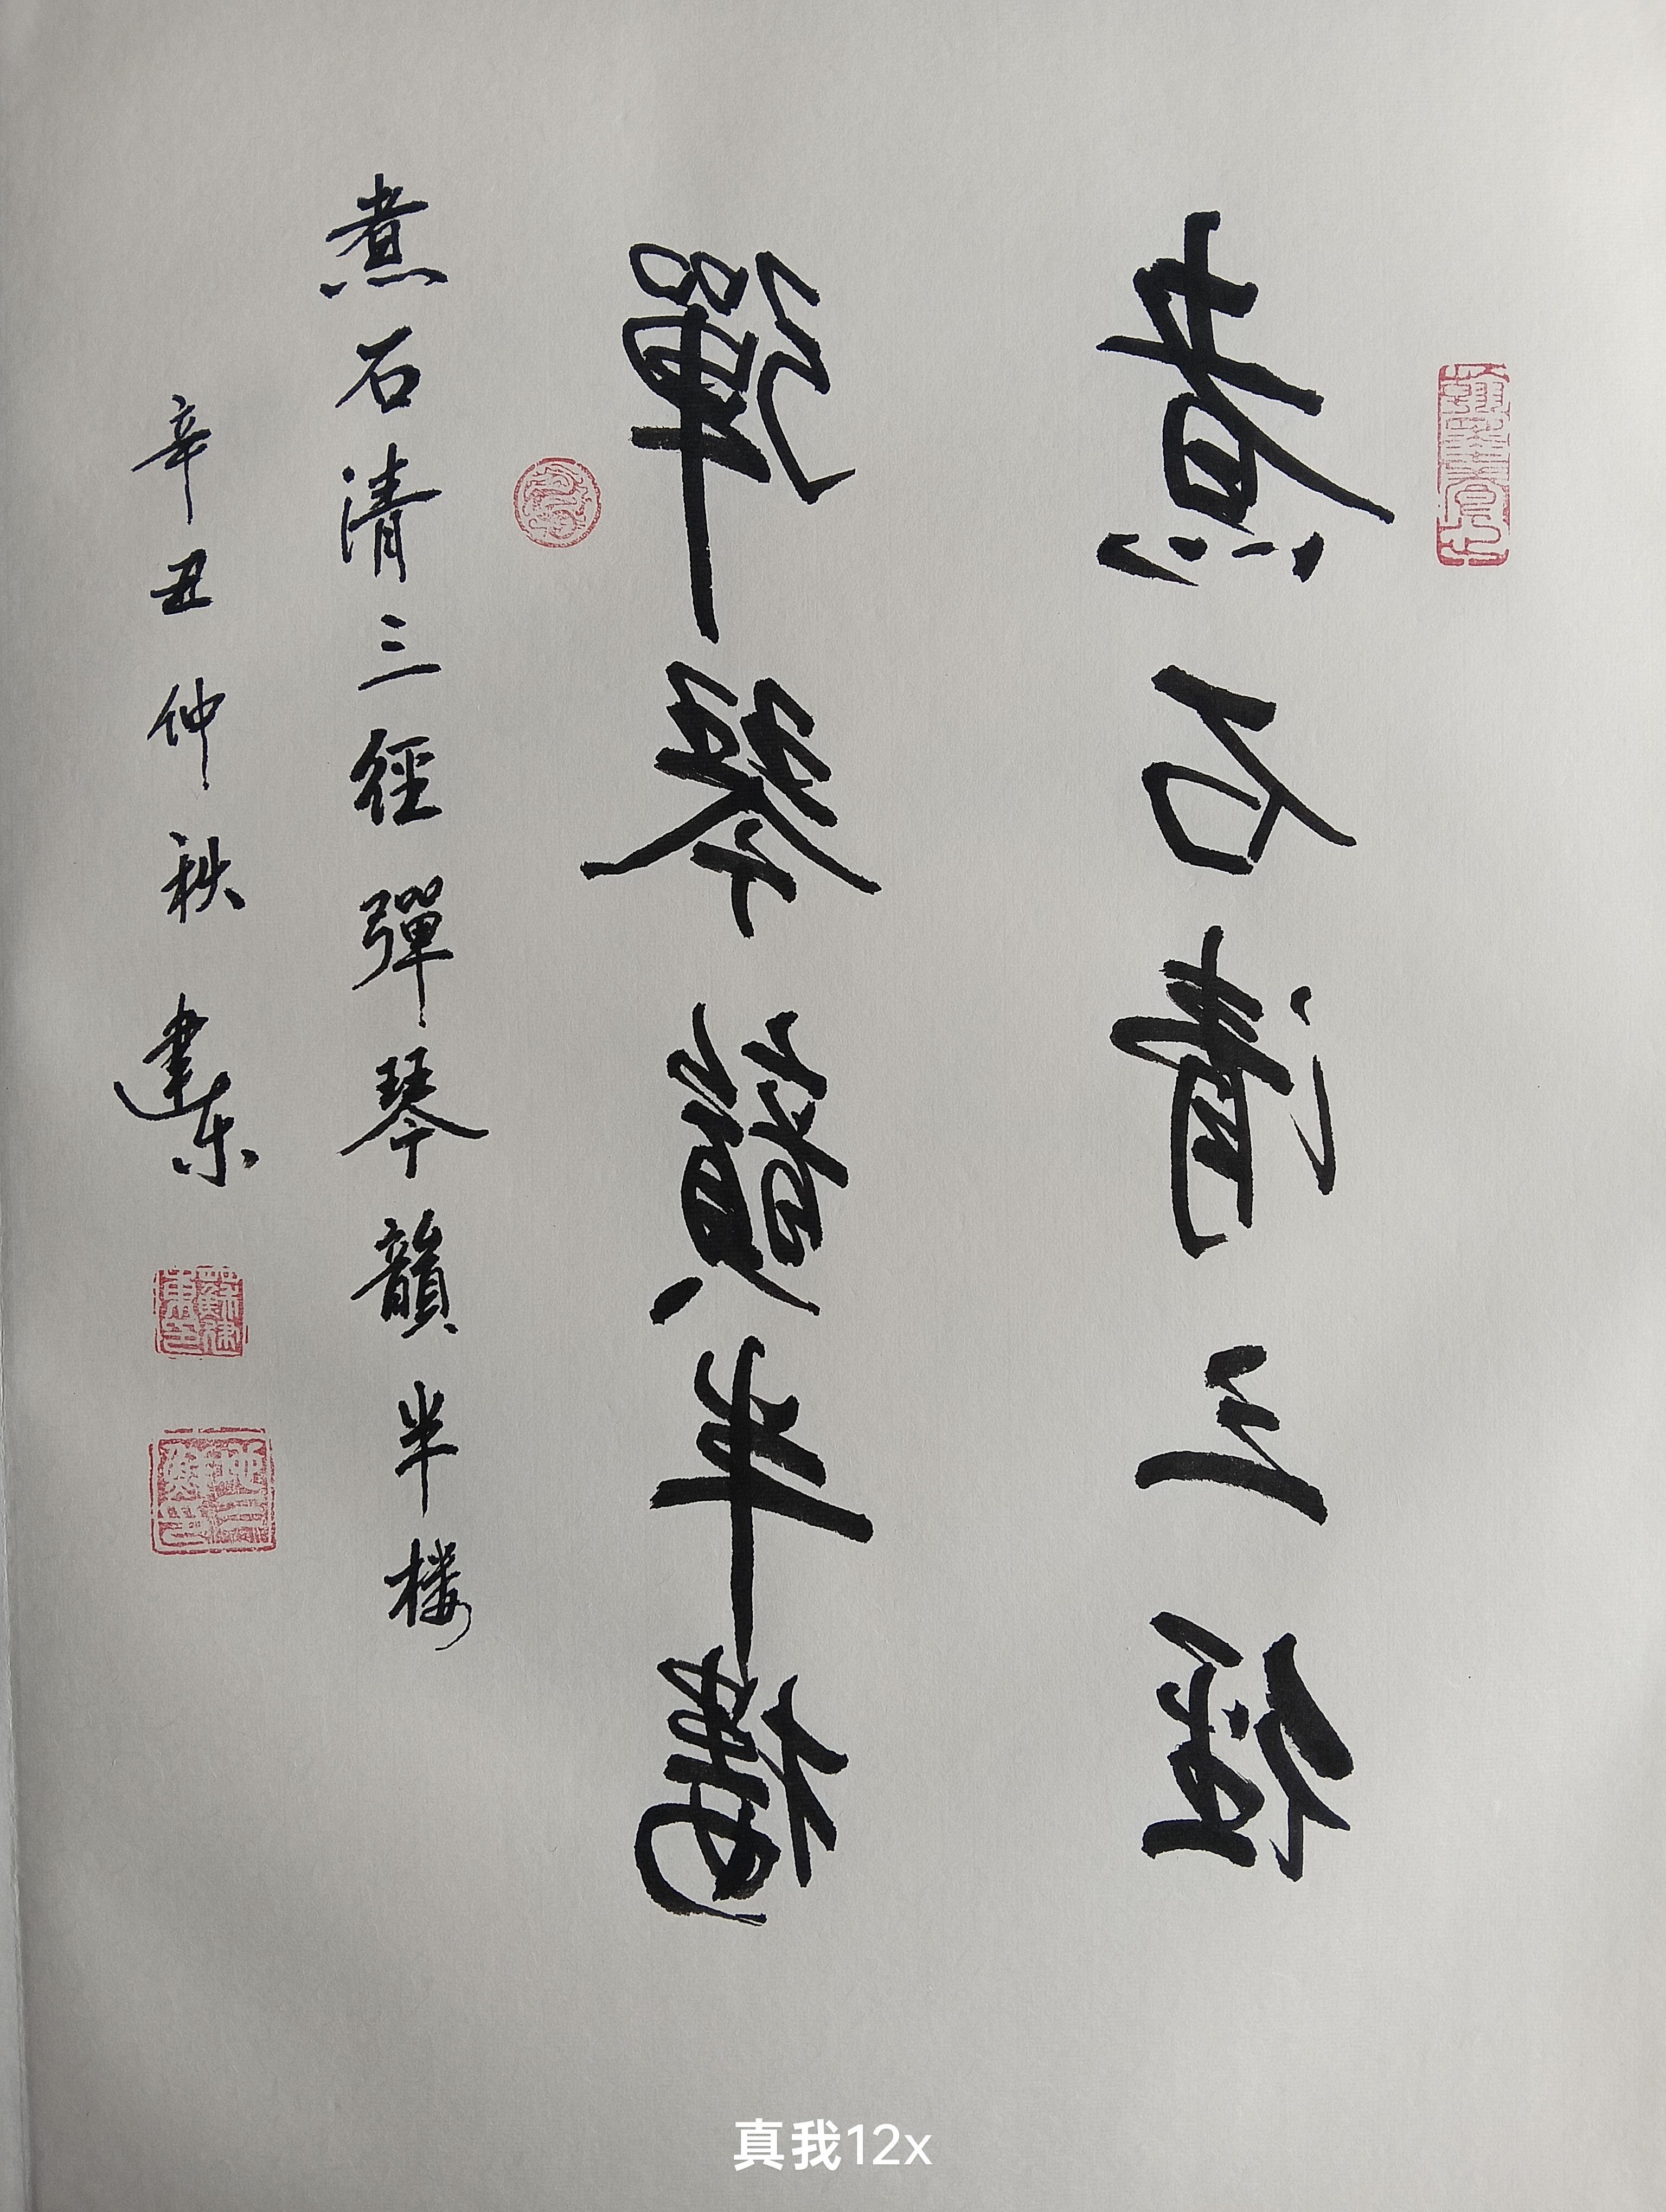 煮石清三徑
彈琴韻半楼
煮石清三徑彈琴韻半楼
辛丑仲秋建东
真我12x